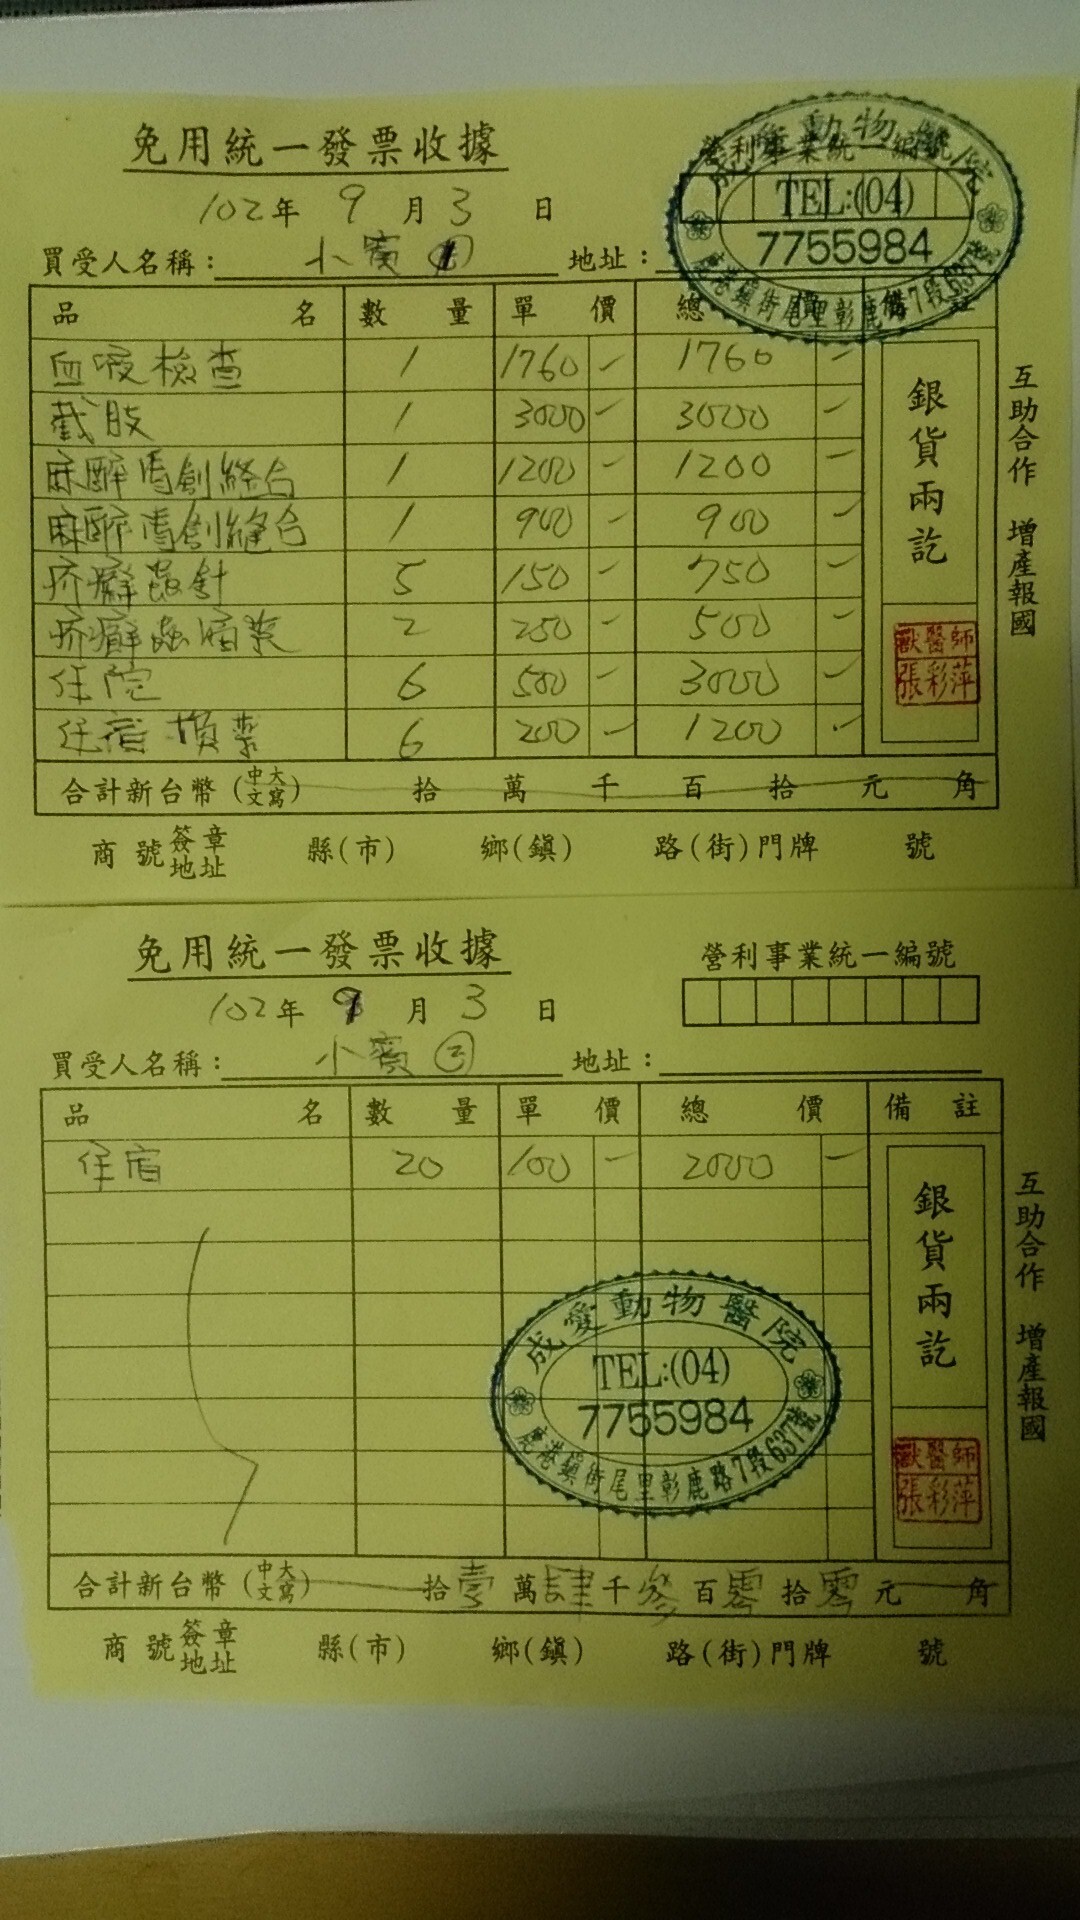 免用統一發票收據
營利事業統一編號
102年 9 月 3 日
TEL:(04)
7755984
鹿港鎮街尾里彰鹿路7段637號
買受人名稱：小賓① 地址：
品名 數量 單價 總價 備註
血液檢查 1 1760 - 1760 -
截肢 1 3000 - 3000 -
麻醉清創縫合 1 1200 - 1200 -
麻醉清創縫合 1 900 - 900 -
疥癬蟲針 5 150 - 750 -
疥癬蟲滴藥 2 250 - 500 -
住院 6 500 - 3000 -
住宿換藥 6 200 - 1200 -
銀貨兩訖
獸醫師
張彩萍
互助合作 增產報國
合計新台幣(中文大寫) 拾 萬 千 百 拾 元 角
商號簽章地址 縣(市) 鄉(鎮) 路(街)門牌 號
免用統一發票收據
營利事業統一編號
102年 9 月 3 日
買受人名稱：小賓② 地址：
品名 數量 單價 總價 備註
住宿 20 100 - 2000 -
成愛動物醫院
TEL:(04)
7755984
鹿港鎮街尾里彰鹿路7段637號
銀貨兩訖
獸醫師
張彩萍
互助合作 增產報國
合計新台幣(中文大寫) 拾壹萬肆千參百零拾零元 角
商號簽章地址 縣(市) 鄉(鎮) 路(街)門牌 號